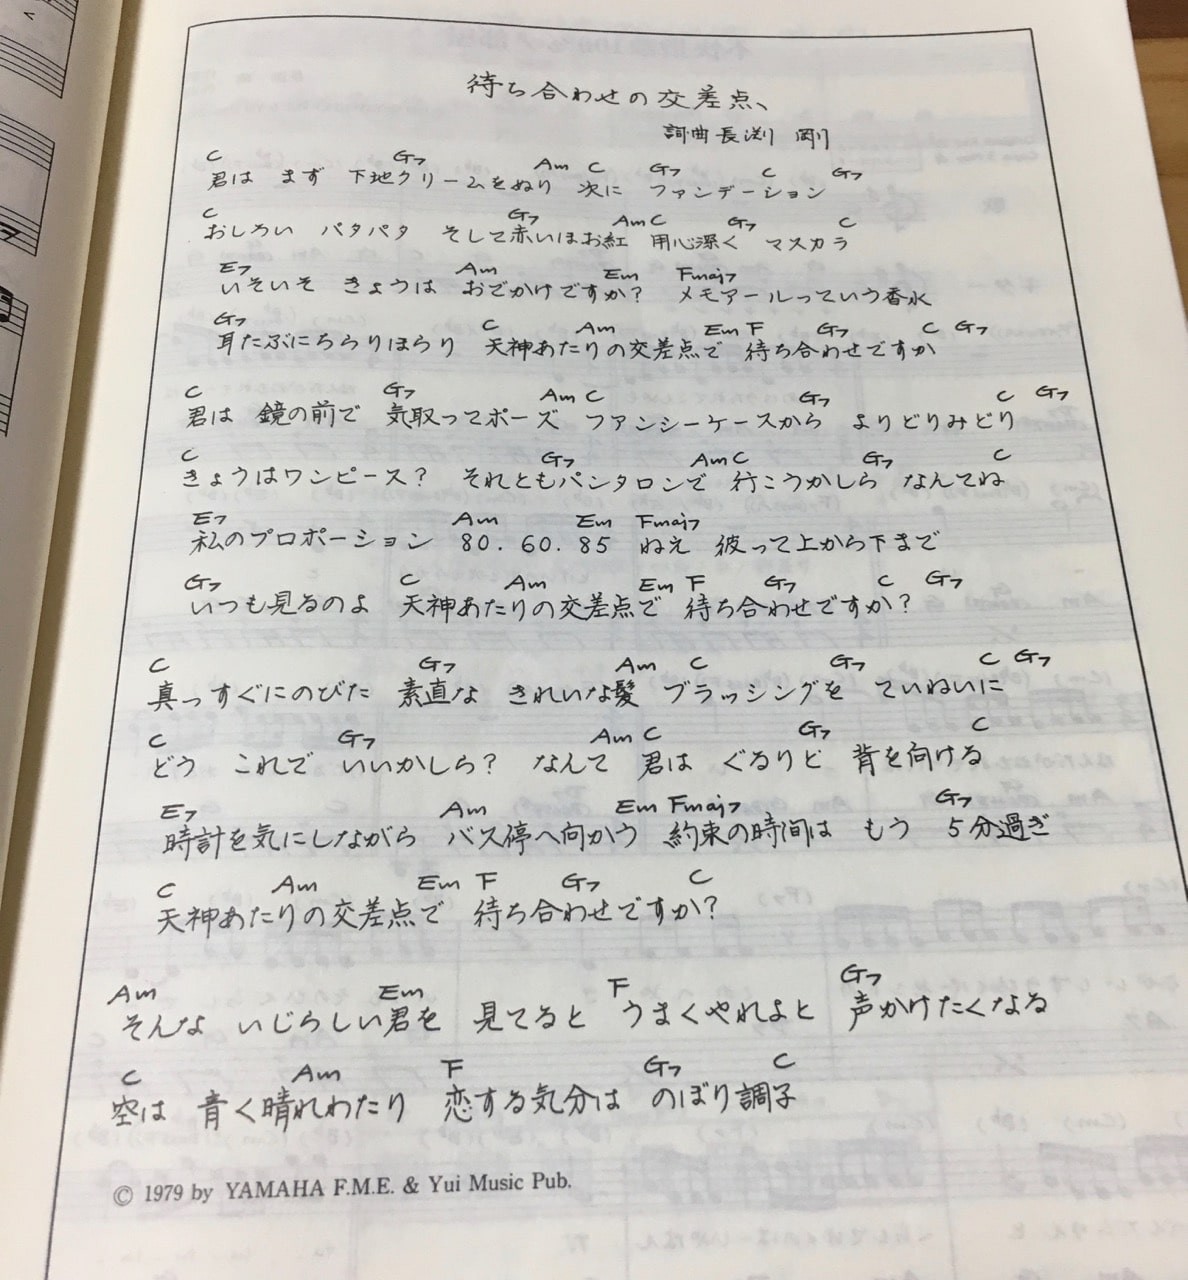 待ち合わせの交差点、
詞曲 長渕 剛
C G7 Am C G7 C G7
君は まず 下地クリームをぬり 次に ファンデーション
C G7 Am C G7 C
おしろい パタパタ そして赤いほお紅 用心深く マスカラ
E7 Am Em Fmaj7
いそいそ きょうは おでかけですか? メモアールっていう香水
G7 C Am Em F G7 C G7
耳たぶにちらりほらり 天神あたりの交差点で 待ち合わせですか
C G7 Am C G7 C G7
君は 鏡の前で 気取ってポーズ ファンシーケースから よりどりみどり
C G7 Am C G7 C
きょうはワンピース? それともパンタロンで 行こうかしら なんてね
E7 Am Em Fmaj7
私のプロポーション 80.60.85 ねえ 彼って上から下まで
G7 C Am Em F G7 C G7
いつも見るのよ 天神あたりの交差点で 待ち合わせですか?
C G7 Am C G7 C G7
真っすぐにのびた 素直な きれいな髪 ブラッシングを ていねいに
C G7 Am C G7 C
どう これで いいかしら? なんて 君は ぐるりと 背を向ける
E7 Am Em Fmaj7 G7
時計を気にしながら バス停へ向かう 約束の時間は もう 5分過ぎ
C Am Em F G7 C
天神あたりの交差点で 待ち合わせですか?
Am Em F G7
そんな いじらしい君を 見てると うまくやれよと 声かけたくなる
C Am F G7 C
空は 青く晴れわたり 恋する気分は のぼり調子
© 1979 by YAMAHA F.M.E. & Yui Music Pub.